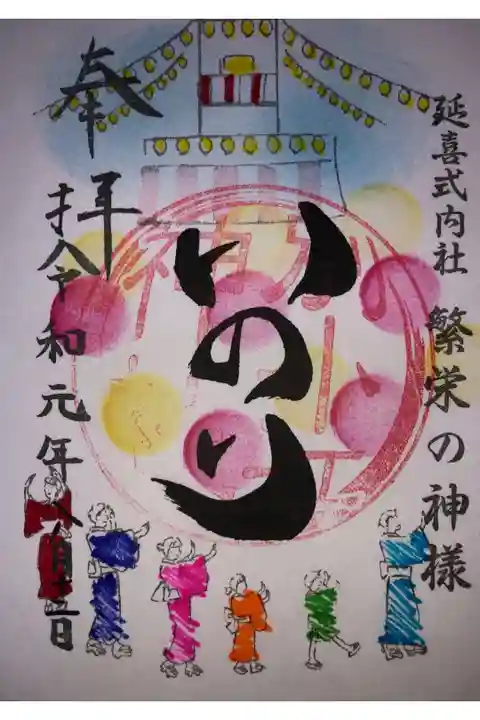 延喜式内社 繁栄の神様
いのり
奉拝
令和元年八月十五日